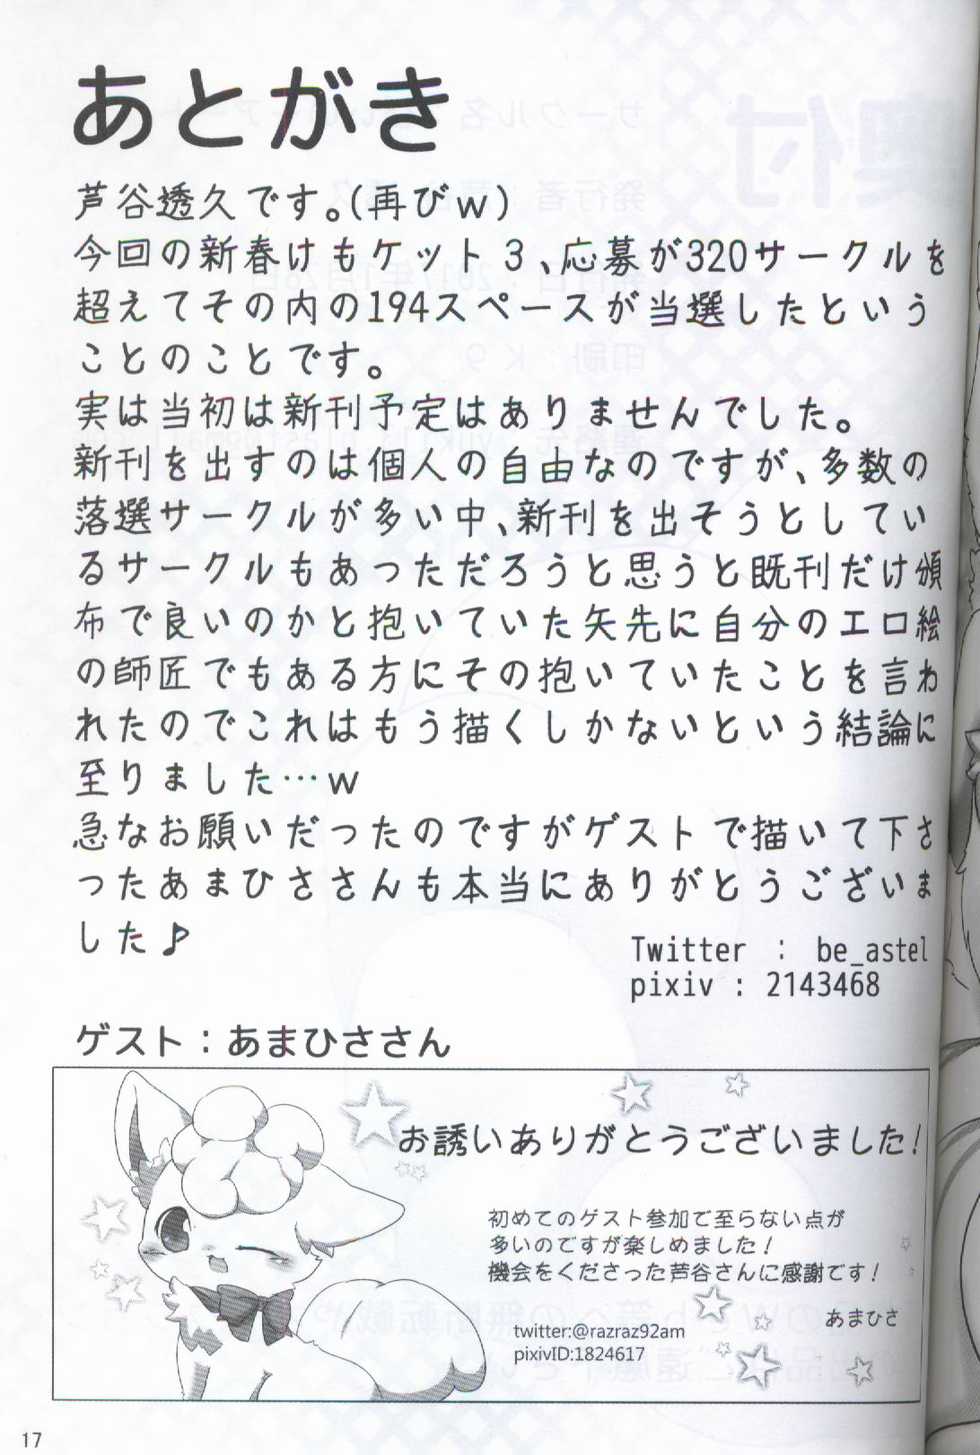 あとがき
芦谷透久です。(再びw)
今回の新春けもケット3、応募が320サークルを
超えてその内の194スペースが当選したという
ことのことです。
実は当初は新刊予定はありませんでした。
新刊を出すのは個人の自由なのですが、多数の
落選サークルが多い中、新刊を出そうとしてい
るサークルもあっただろうと思うと既刊だけ頒
布で良いのかと抱いていた矢先に自分のエロ絵
の師匠でもある方にその抱いていたことを言わ
れたのでこれはもう描くしかないという結論に
至りました…w
急なお願いだったのですがゲストで描いて下さ
ったあまひささんも本当にありがとうございま
した♪
Twitter : be_astel
pixiv : 2143468
ゲスト:あまひささん
お誘いありがとうございました!
初めてのゲスト参加で至らない点が
多いのですが楽しめました!
機会をくださった芦谷さんに感謝です!
あまひさ
twitter:@razraz92am
pixivID:1824617
17